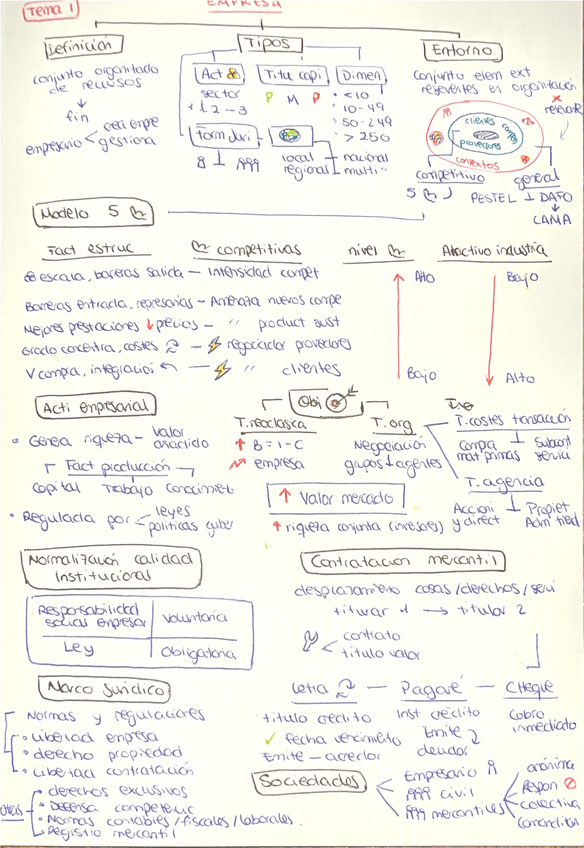 Tema 1
EMPRESA
Definición
Tipos
Entorno
conjunto organizado
de recursos
fin
empresario
crea empre
gestiona
Act
sector
1 2-3
Titu capi
P M P
Dimen
<10
10-49
50-249
>250
Form Juri
local
regional
nacional
multi "
conjunto elem ext
en organización
relevante
clientes compe
proveedores
contextos
competitivo
5
general
PESTEL DAFO
CAMA
Modelo 5
Fact estruc
competitivas
nivel
Atractivo industria
escala, barreras salida - Intensidad compet
Barreras entrada, represarias - Amenaza nuevos compe
Mejores prestaciones ↓ precios - " product sust
Grado concentra, costes - negociador proveedores
V compra, integracion - " clientes
Alto
Bajo
Bajo
Alto
Acti empresarial
Genera riqueza - valor
añadido
Fact producción
capital Trabajo conocimiet
Regulada por
leyes
políticas guber
Obj
T. neoclasica
↑ B = I - C
empresa
T. org
Negociación
grupos agentes
T. costes transacción
compra
mat primas
subcont
servicu
T. agencia
Accioni
y direct
Propiet
Adm tied
↑ Valor mercado
↑ riqueza conjunta (inversores)
Normalización calidad
Institucional
Responsabilidad
social empresar
voluntaria
Ley
obligatoria
Contratacion mercantil
desplazamiento cosas/derechos/servi
titular 1 → titular 2
contrato
titulo valor
Letra - Pagaré - Cheque
titulo crédito
✓ fecha vencimieto
Emite - acredor
Inst crédito
Emite
deudor
Cobro
inmediato
Marco Jurídico
Normas y regulaciones
• Libertad empresa
• derecho propiedad
• Libertad contratación
otras
• derechos exclusivos
• Defensa competenc
• Normas contables/fiscales/laborales.
• Registro mercantil
Sociedades
Empresario
civil
mercantiles
anónima
Respon
colectiva
comanditar